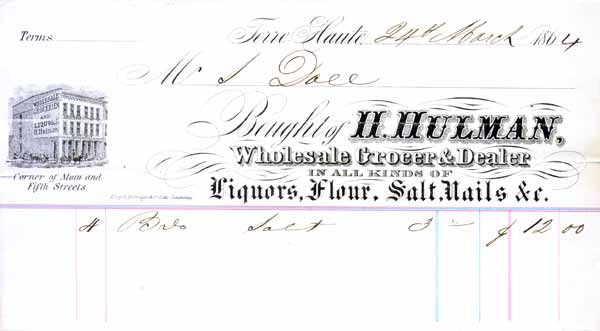 Terms
Terre Haute, 24th March 1864
M S Doll
WHOLESALE
GROCERIES
AND
LIQUORS
H. HULMAN
Bought of H. HULMAN,
Wholesale Grocer & Dealer
IN ALL KINDS OF
Liquors, Flour, Salt, Nails &c.
Corner of Main and
Fifth Streets.
4 Salt 3 $ 12 00